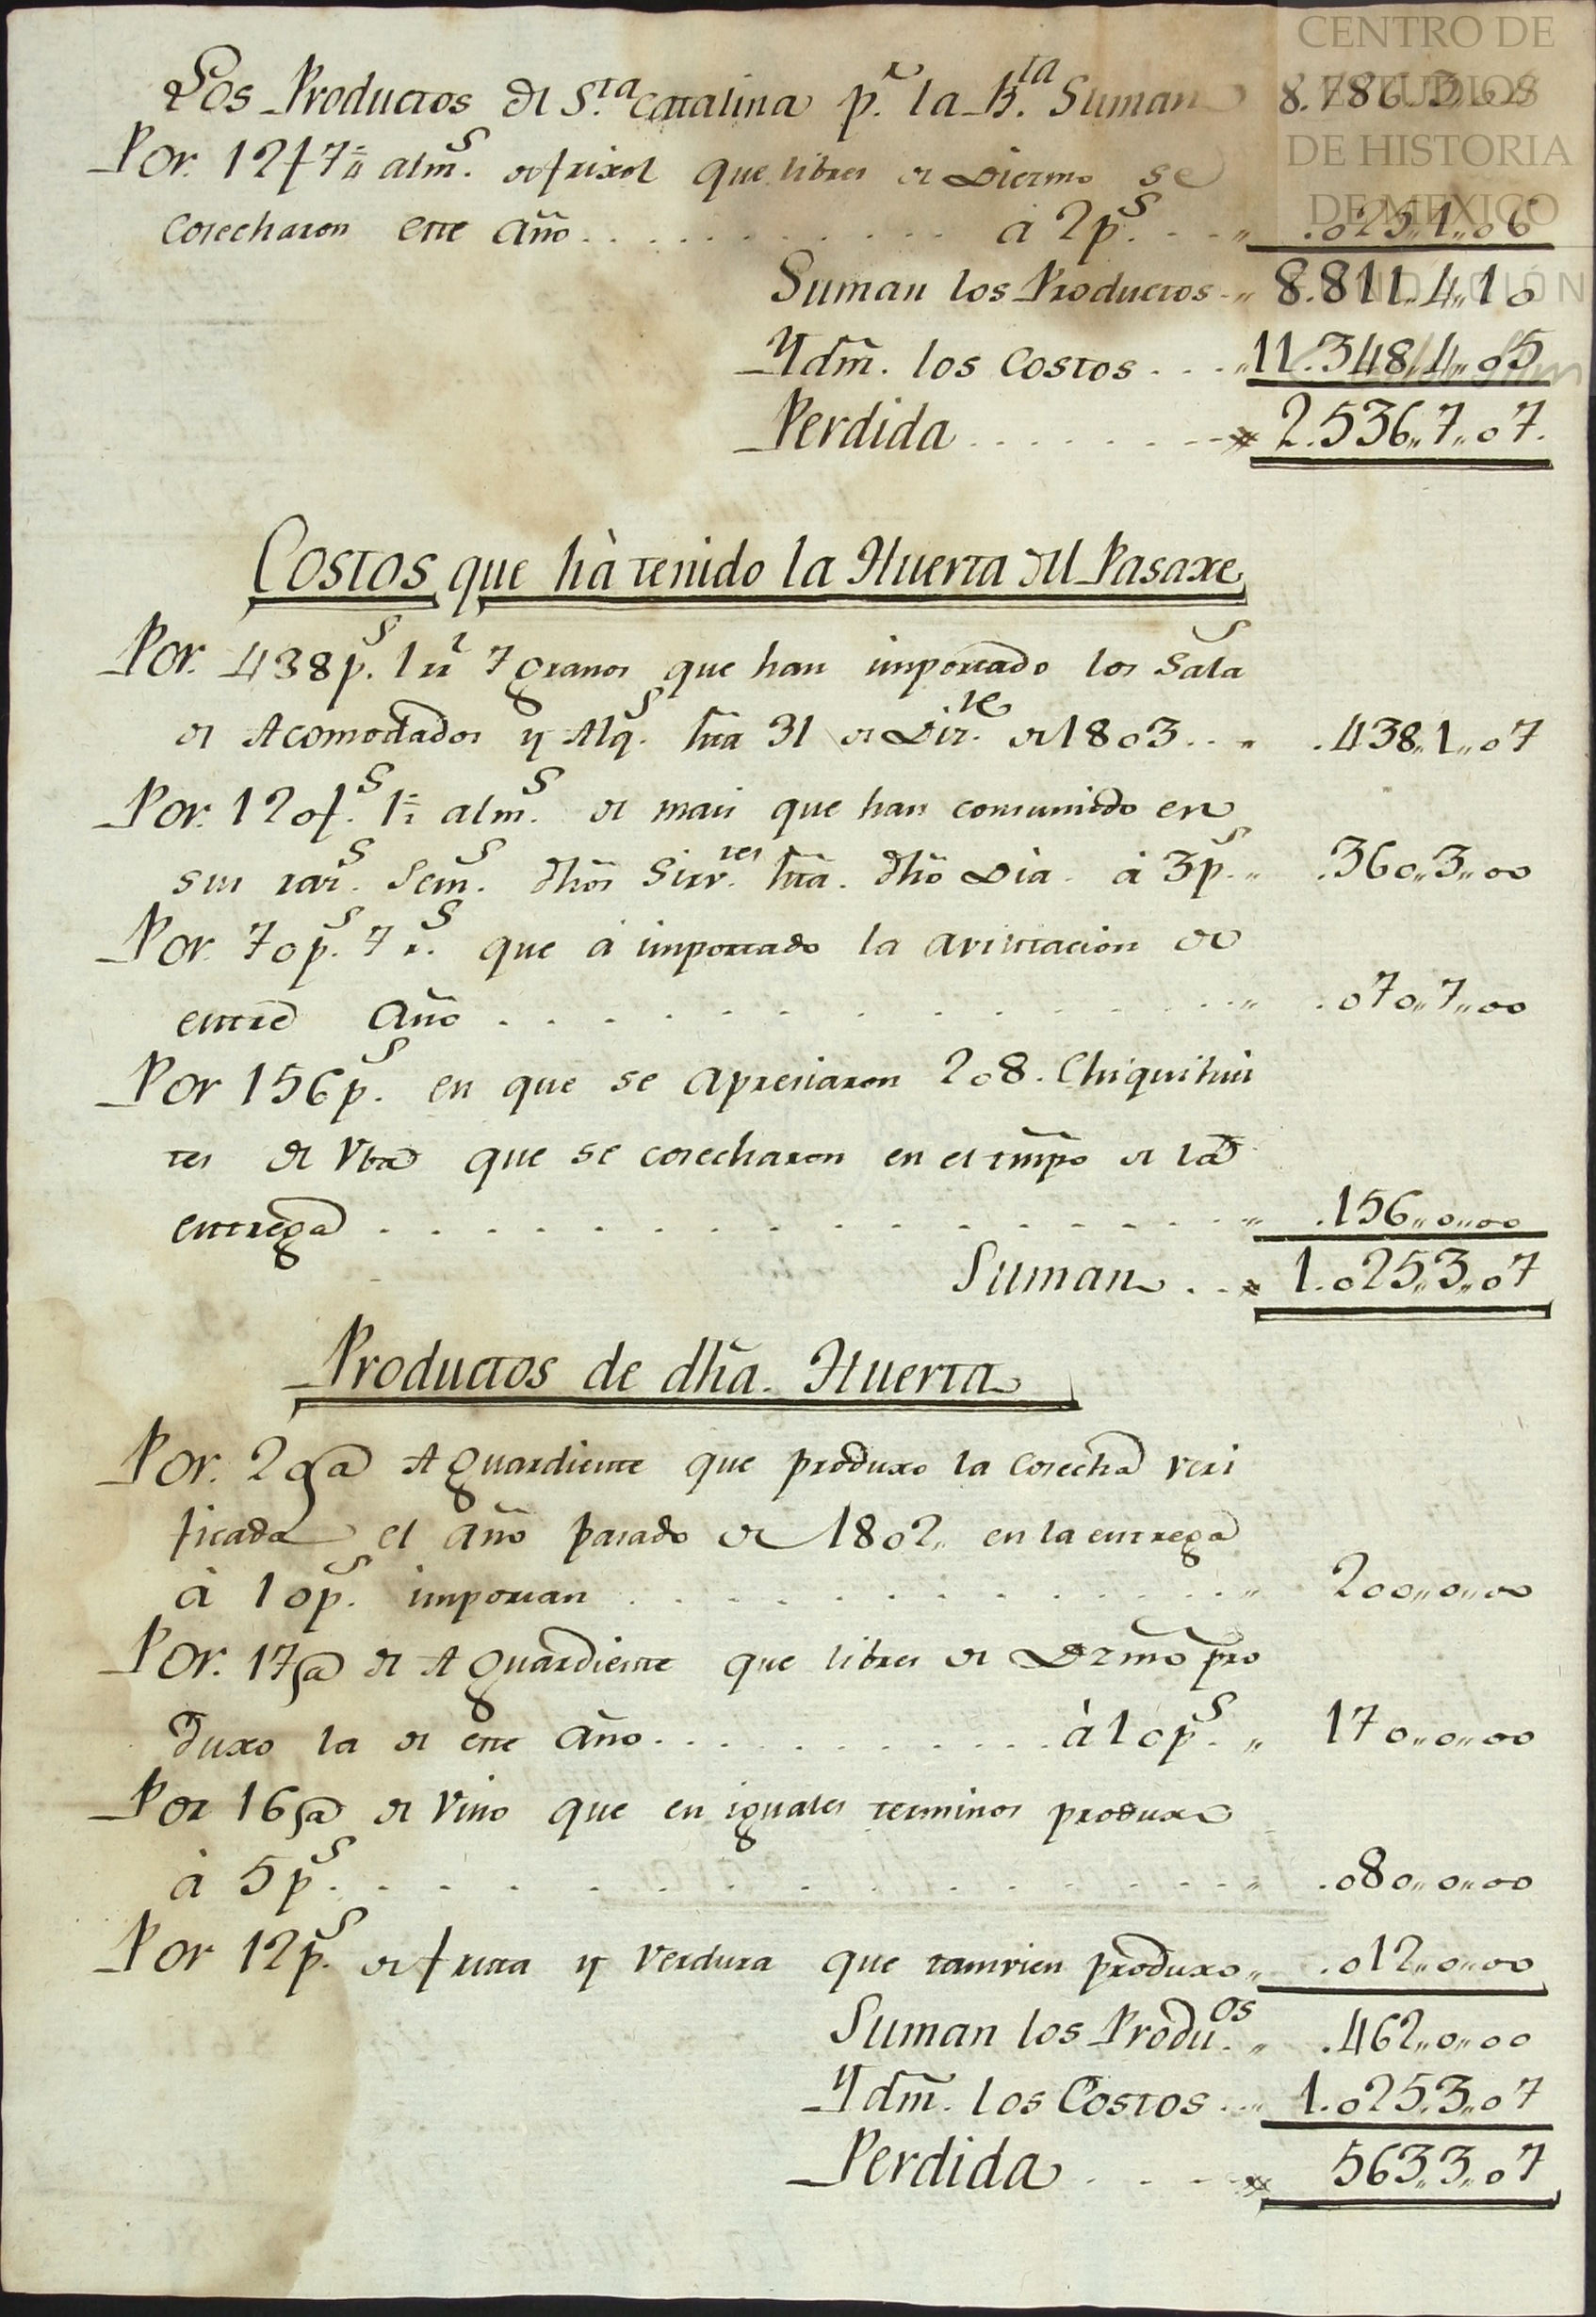 Los Productos de S.ta Catalina p.r la B.ta Suman 8.786,,3,,04
Por. 12 f 7 alm.s de frixol que libres de Diezmo se
cosecharon este año . . . . . . . . . . . à 2 p.s . . ,, .025,,1,,06
Suman los Productos . ,, 8.811,,4,,10
Ydm̃. los Costos . . . ,, 11.348,,4,,05
Perdida . . . . . . . 2.536,,7,,07.
Costos que hà tenido la Huerta del Pasaxe
Por. 438 p.s 1 rr.l 7 granos que han importado los Sala.s
de Acomodados y Alq.s hta 31 de Diz.re de 1803. . ,, .438,,1,,07
Por. 120 f.s 1 alm.s de mais que han consumido en
sus rar.s Sem.s dhõs Sirv.tes hta. dhõ Dia à 3 p.s ,, .360,,3,,00
Por. 70 p.s 7 r.s que à importado la aviitacion de
entre año . . . . . . . . . . . . . . ,, .070,,7,,00
Por 156 p.s en que se apresiaron 208. Chiquihui
tes de Vba que se cosecharon en el tmpõ de la
entrega . . . . . . . . . . . . . . . . ,, .156,,0,,00
Suman . . 1.025,,3,,07
Productos de dhã. Huerta
Por. 20 a Aguardiente que produxo la cosecha veri
ficada el año pasado de 1802,, en la entrega
à 10 p.s importan . . . . . . . . . . . . ,, 200,,0,,00
Por. 17 a de Aguardiente que libres de Dzmõ pro
duxo la de este año . . . . . . . . . . . à 10 p.s ,, 170,,0,,00
Por 16 a de Vino que en iguales terminos produxo
à 5 p.s . . . . . . . . . . . . . . . . ,, .080,,0,,00
Por 12 p.s de fruta y verdura que tamvien produxo ,, .012,,0,,00
Suman los Produ.os ,, .462,,0,,00
Ydm̃. los Costos . . ,, 1.025,,3,,07
Perdida . . . . 563,,3,,07
CENTRO DE
ESTUDIOS
DE HISTORIA
DE MEXICO